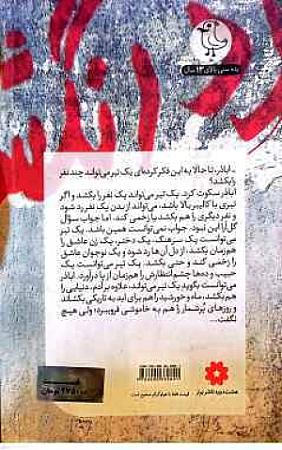 رده سنی بالای ۱۳ سال
ـ اباذر، تا حالا به این فکر کرده‌ای یک تیر می‌تواند چند نفر
را بکشد؟
اباذر سکوت کرد. یک تیر می‌تواند یک نفر را بکشد و اگر
تیری با کالیبر بالا باشد، می‌تواند از بدن یک نفر رد شود
و نفر دیگری را هم بکشد یا زخمی کند. اما جواب سؤال
گل‌آرا این نبود. جواب نمی‌توانست همین باشد. یک تیر
می‌توانست یک سرهنگ، یک دختر، یک زن عاشق را
هم‌زمان بکشد، از دل آن‌ها رد شود و یک نوجوان عاشق
را زخمی کند و حتی بکشد. یک تیر می‌توانست یک
حبیب و ده‌ها چشم‌انتظارش را هم‌زمان از پا درآورد. اباذر
می‌توانست بگوید یک تیر می‌تواند، علاوه بر آدم، دنیایی را
هم بکشد، ماه و خورشید را هم برای ابد به تاریکی بکشاند
و روزهای پرشمار را هم به خاموشی فروببرد؛ ولی هیچ
نگفت...
هشت‌دوره ناشر برتر
قیمت فقط با هولوگرام صحیح است
تومان